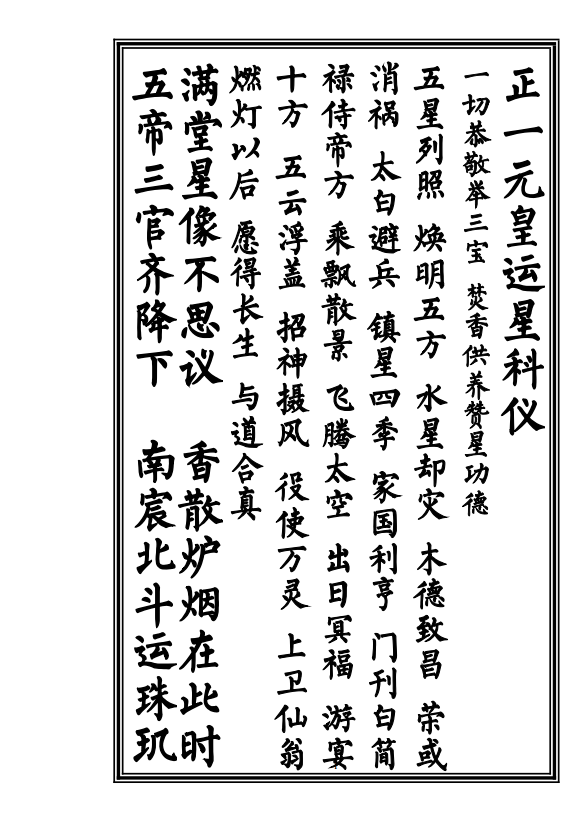 正一元皇运星科仪
一切恭敬举三宝 焚香供养赞星功德
五星列照 焕明五方 水星却灾 木德致昌 荣或
消祸 太白避兵 镇星四季 家国利亨 门刊白简
禄侍帝方 乘飘散景 飞腾太空 出日冥福 游宴
十方 五云浮盖 招神摄风 役使万灵 上卫仙翁
燃灯以后 愿得长生 与道合真
满堂星像不思议 香散炉烟在此时
五帝三官齐降下 南宸北斗运珠玑